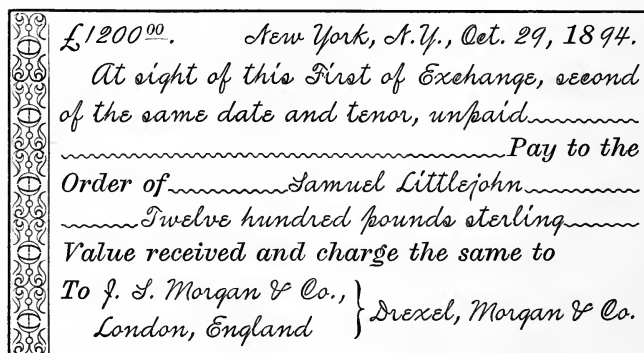 £1200⁰⁰. New York, N.Y., Oct. 29, 1894.
At sight of this First of Exchange, second
of the same date and tenor, unpaid
Pay to the
Order of Samuel Littlejohn
Twelve hundred pounds sterling
Value received and charge the same to
To J. S. Morgan & Co.,
London, England } Drexel, Morgan & Co.